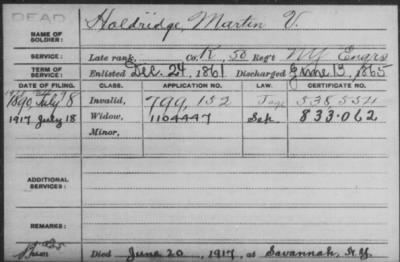 DEAD
NAME OF SOLDIER: Holdridge, Martin V.
SERVICE: Late rank, Co. K, 50 Reg't NY Engrs
TERM OF SERVICE: Enlisted Dec. 24, 1861 Discharged June 13, 1865
DATE OF FILING. CLASS. APPLICATION NO. LAW. CERTIFICATE NO.
1890, July 8 Invalid, 799,152 538,554
1917 July 18 Widow, 1104447 Sep. 833.062
Minor,
ADDITIONAL SERVICES:
REMARKS:
Died June 20, 1917, at Savannah, N.Y.